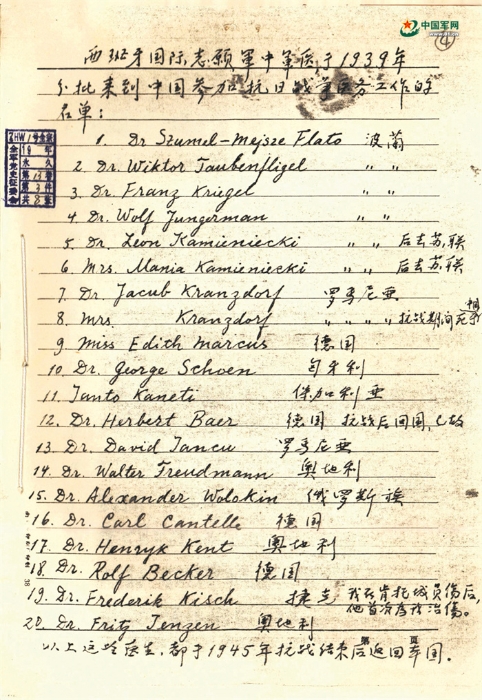 中国军网
④
西班牙国际志愿军中军医于1939年
分批来到中国参加抗日战争医务工作的
名单:
1. Dr Szumel-Mejsze Flato 波蘭
2. Dr. Wiktor Taubenfligel 〃 〃
3. Dr. Franz Kriegel 〃 〃
4. Dr. Wolf Jungerman 〃 〃
5. Dr. Leon Kamieniecki 〃 〃 后去苏联
6. Mrs. Mania Kamieniecki 〃 〃 后去苏联
7. Dr. Jacub Kranzdorf 罗馬尼亚
8. Mrs. Kranzdorf 〃 〃 〃 〃 抗战期间死于中国
9. Miss Edith Marcus 德国
10. Dr. George Schoen 匈牙利
11. Ianto Kaneti 保加利亚
12. Dr. Herbert Baer 德国 抗战后回国,已故
13. Dr. David Iancu 罗馬尼亚
14. Dr. Walter Freudmann 奥地利
15. Dr. Alexander Wolokin 俄罗斯族
16. Dr. Carl Cantelle 德国
17. Dr. Henryk Kent 奥地利
18. Dr. Rolf Becker 德国
19. Dr. Frederik Kisch 捷克 我在肯托城负伤后,
他首次为我治傷。
20. Dr. Fritz Jenzen 奥地利
第 页
以上这些医生,都于1945年抗战结束后返回本国。